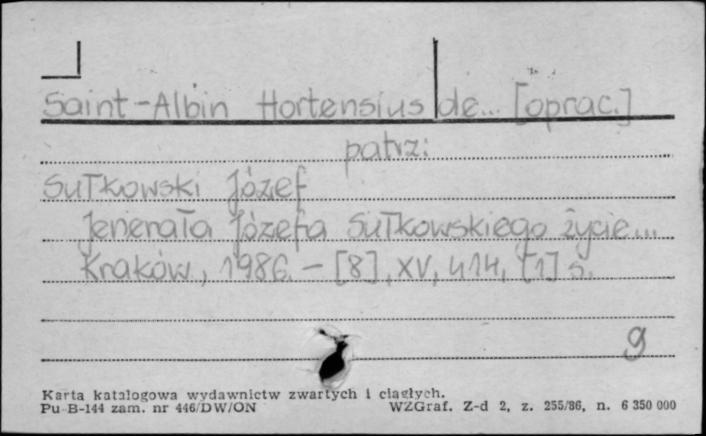 Saint-Albin Hortensius de... [oprac.]
patrz:
Sułkowski Józef
Jenerała Józefa Sułkowskiego życie...
Kraków, 1986. – [8], XV, 414, [1] s.
9
Karta katalogowa wydawnictw zwartych i ciągłych.
Pu-B-144 zam. nr 446/DW/ON WZGraf. Z-d 2, z. 255/86, n. 6 350 000